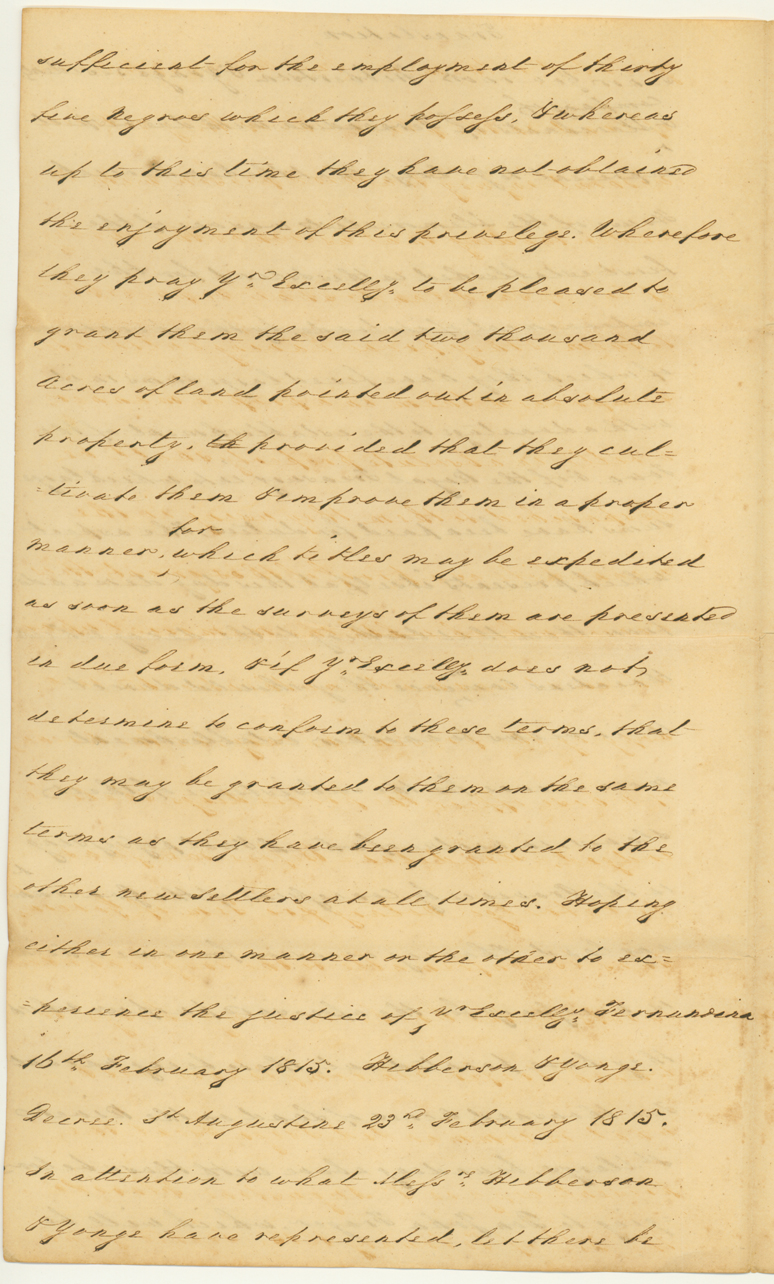 sufficient for the employment of thirty
five Negroes which they possess, & whereas
up to this time they have not obtained
the enjoyment of this privelege. Wherefore
they pray Yr. Excelly. to be pleased to
grant them the said two thousand
Acres of land pointed out in absolute
property, th provided that they cul=
=tivate them & improve them in a proper
manner, for which titles may be expedited
as soon as the surveys of them are presented
in due form, & if Yr. Excelly. does not
determine to conform to these terms, that
they may be granted to them on the same
terms as they have been granted to the
other new Settlers at all times. Hoping
either in one manner or the other to ex=
=perience the justice of Yr. Excelly. Fernandina
16th. February 1815. Hibberson & Yonge.
Decree. St. Augustine 23rd. February 1815.
In attention to what Messrs. Hibberson
& Yonge have represented, let there be